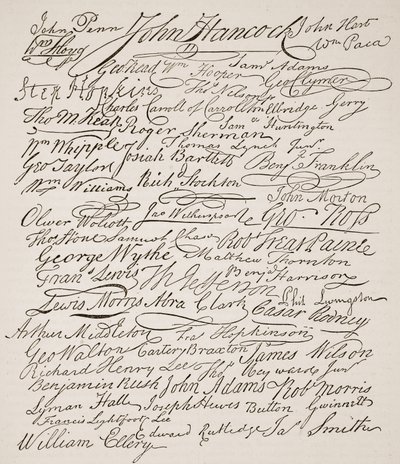 John Penn John Hancock John Hart
Wm Floyd Wm Paca
Geo Read Wm Hooper Saml Adams
Step Hopkins Thos Nelson jr Geo Clymer
Charles Carroll of Carrollton Elbridge Gerry
Tho M:Kean Roger Sherman Saml Huntington
Wm Whipple Thomas Lynch Junr
Geo Taylor Josiah Bartlett Benj Franklin
Wm Williams Richd Stockton John Morton
Oliver Wolcott Jno Witherspoon Geo. Ross
Thos Stone Samuel Chase Robt Treat Paine
George Wythe Matthew Thornton
Frans Lewis Th Jefferson Benj Harrison
Lewis Morris Abra Clark Phil Livingston
Cæsar Rodney
Arthur Middleton Fra Hopkinson
Geo Walton Carter Braxton James Wilson
Richard Henry Lee Thos Heyward Junr
Benjamin Rush John Adams Robt Morris
Lyman Hall Joseph Hewes Button Gwinnett
Francis Lightfoot Lee
William Ellery Edward Rutledge Jas Smith